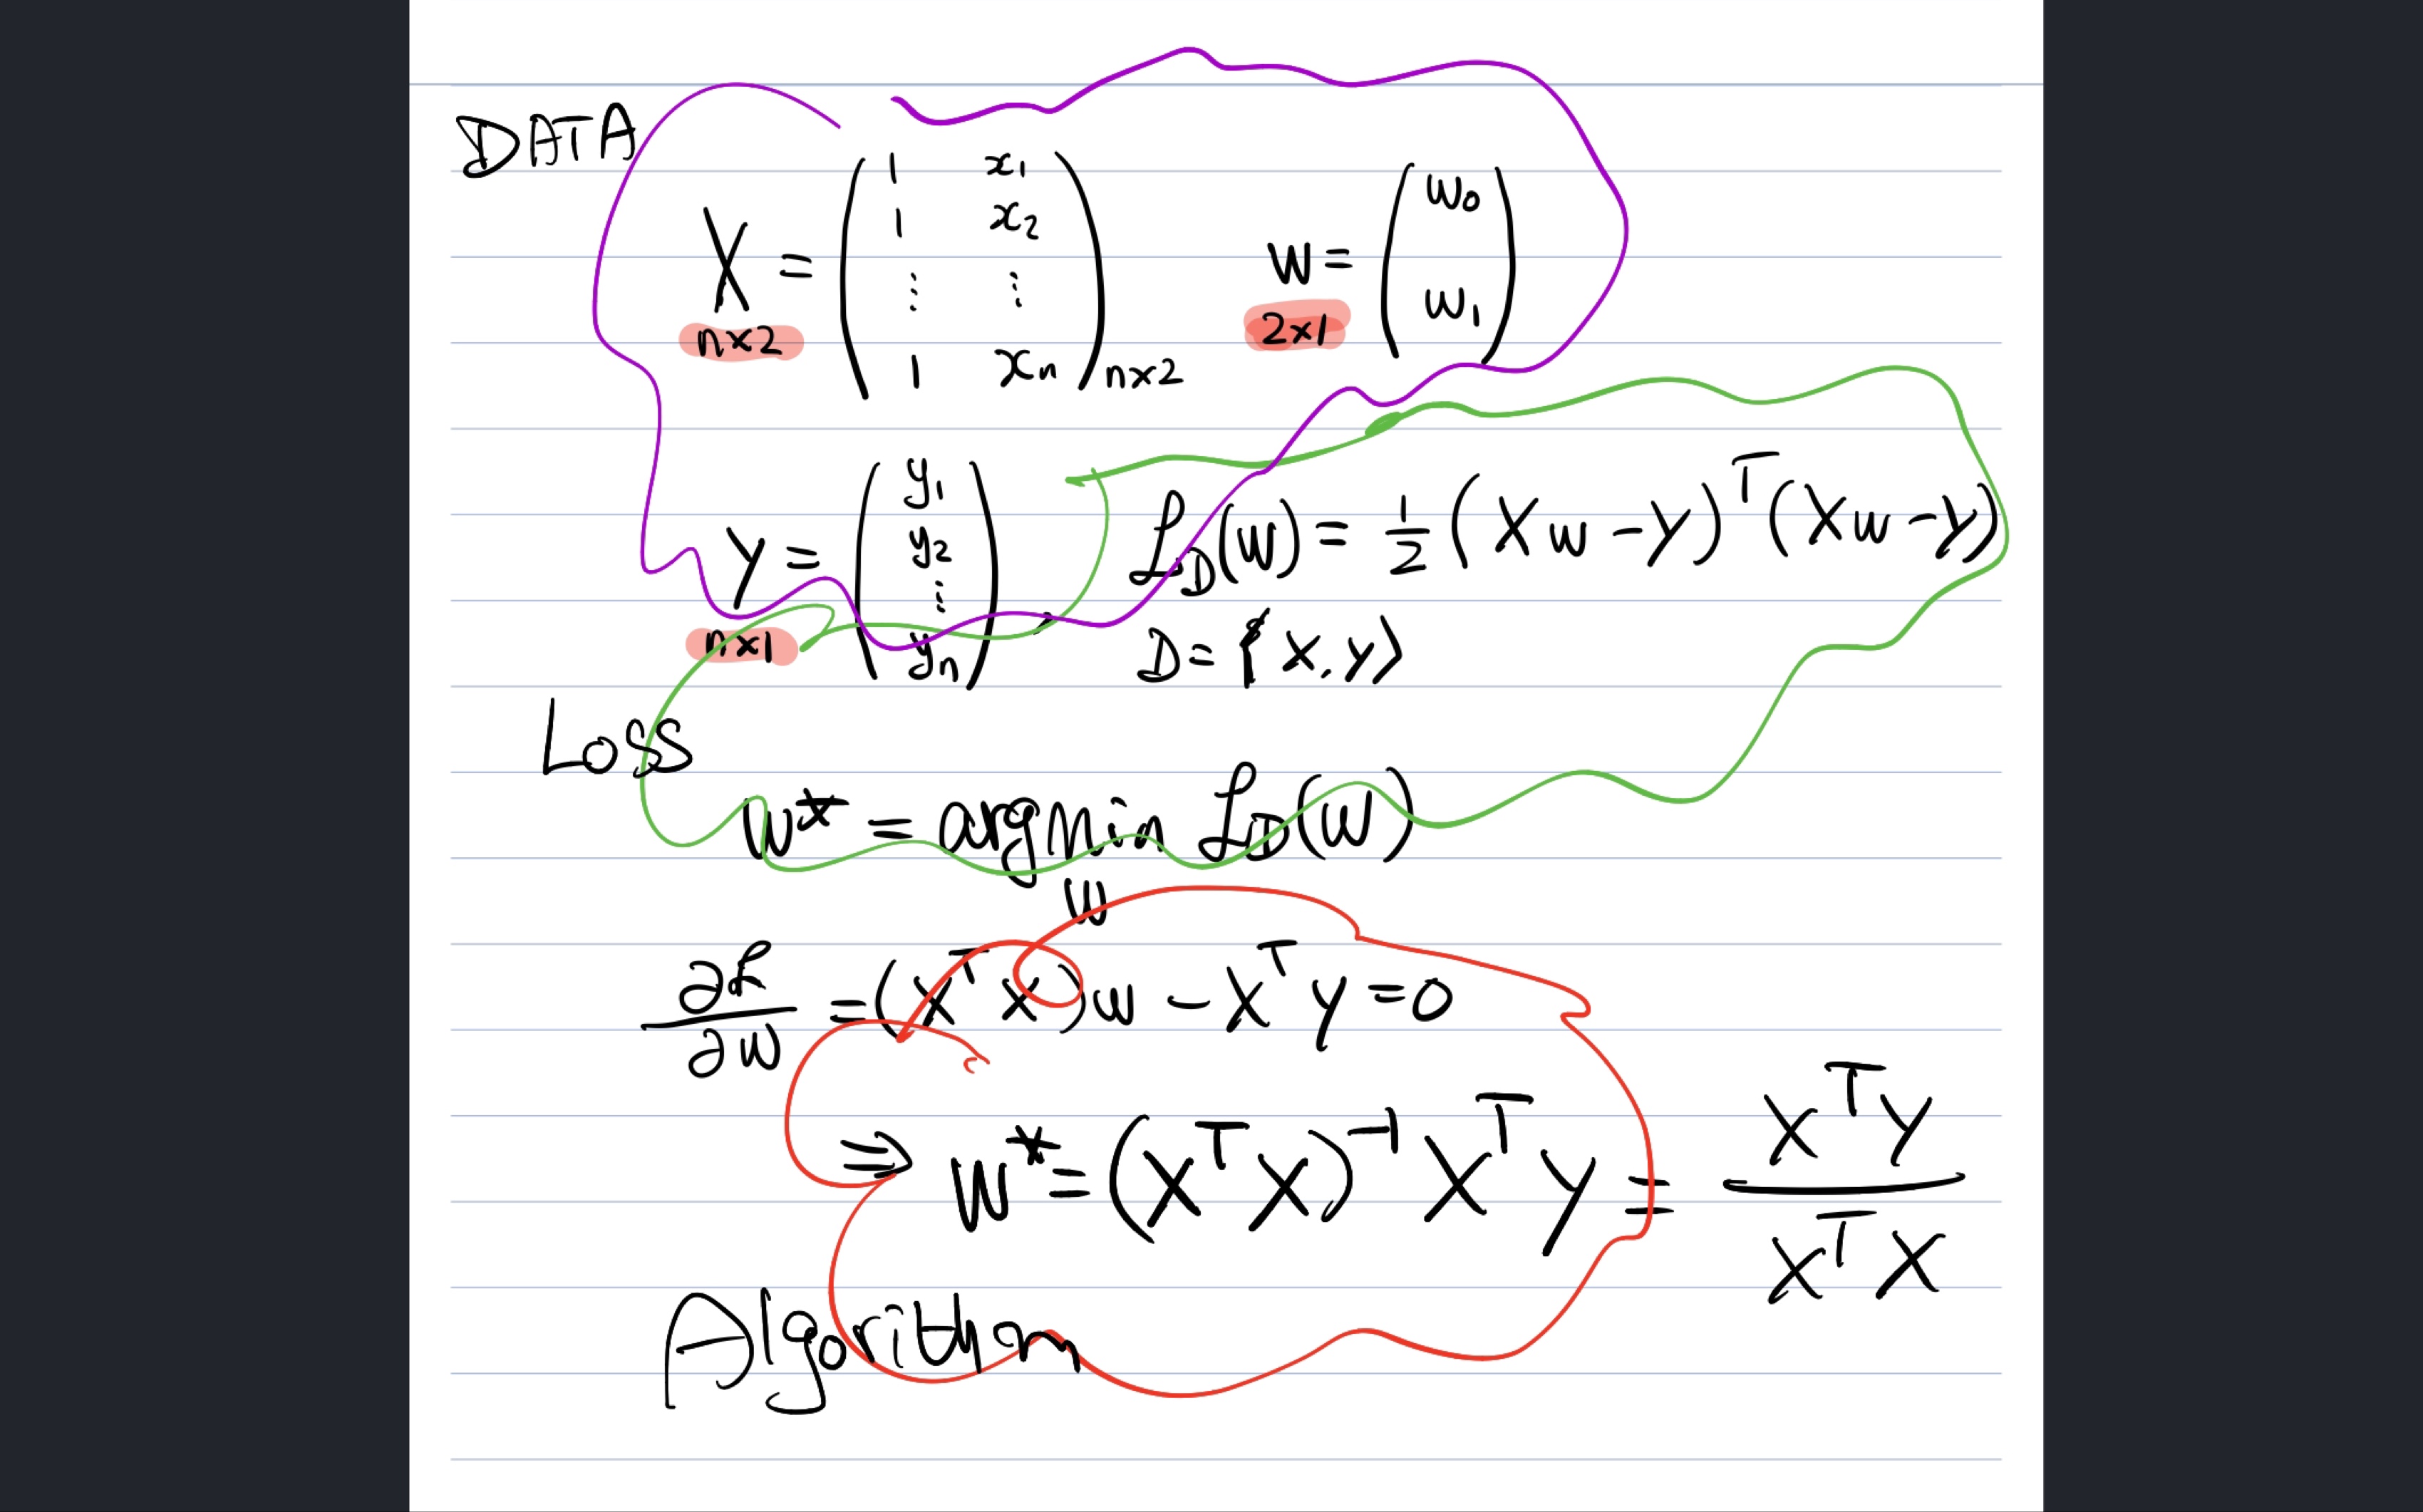 DATA
X = ( 1 x₁ 1 x₂ ⋮ ⋮ 1 xₙ ) n×2
n×2
W = ( w₀ w₁ )
2×1
Y = ( y₁ y₂ ⋮ yₙ )
n×1
ℒ_D(W) = 1/2 (Xw − y)ᵀ(Xw − y)
D = {X, y}
Loss
W* = argmin ℒ_D(W)
W
∂ℒ/∂W = (XᵀX)w − Xᵀy = 0
⇒ W* = (XᵀX)⁻¹Xᵀy = XᵀY / XᵀX
Algorithm